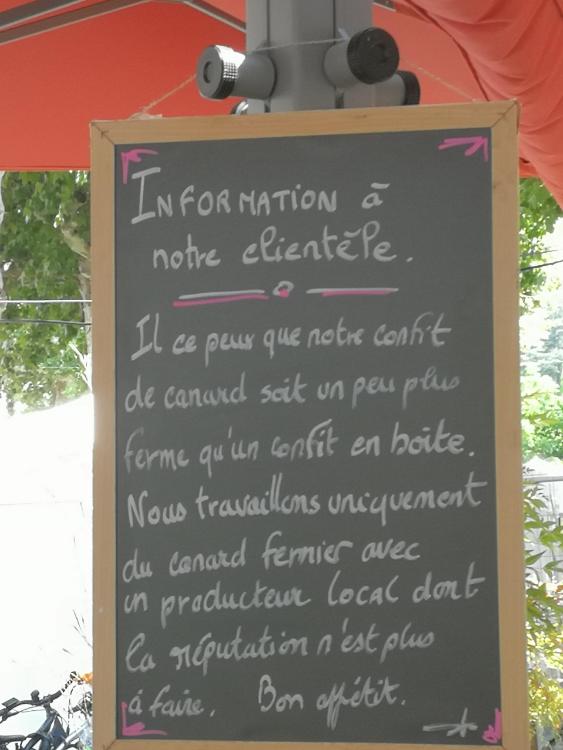 INFORMATION à
notre clientèle.
Il ce peux que notre confit
de canard soit un peu plus
ferme qu'un confit en boite.
Nous travaillons uniquement
du canard fermier avec
un producteur local dont
la réputation n'est plus
á faire. Bon appétit.